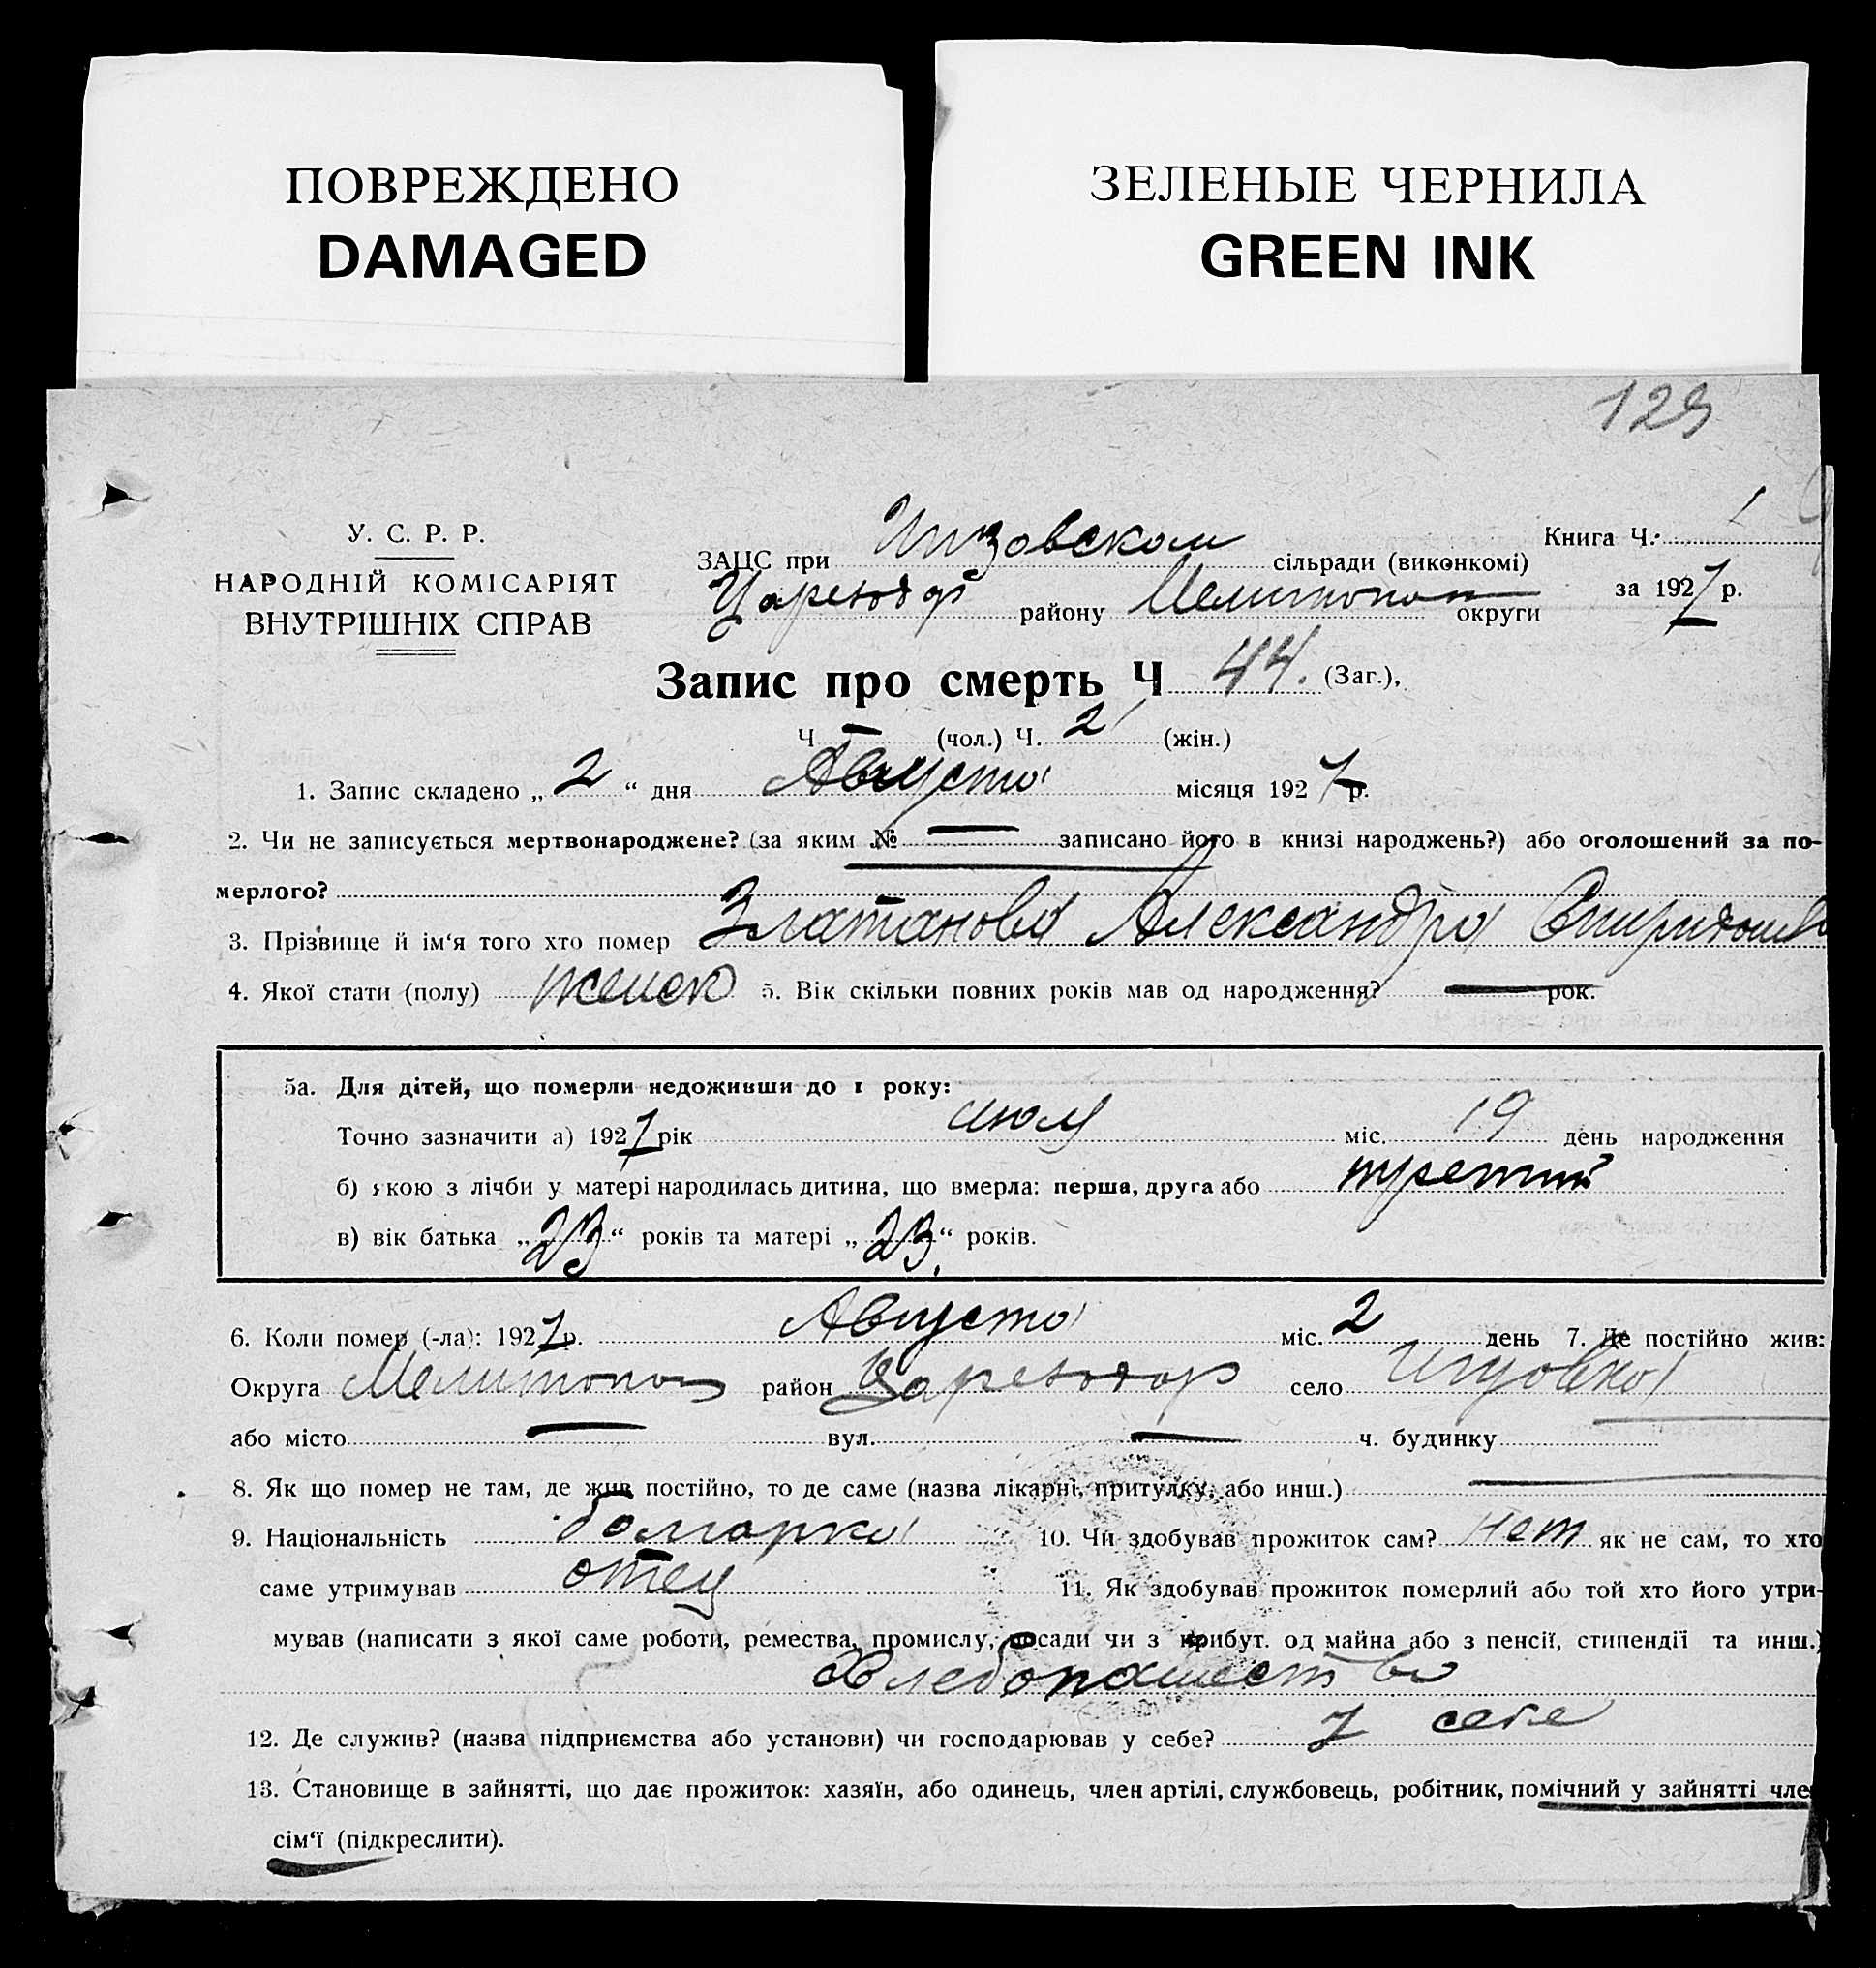 ПОВРЕЖДЕНО
DAMAGED
ЗЕЛЕНЫЕ ЧЕРНИЛА
GREEN INK
129
У. С. Р. Р.
НАРОДНІЙ КОМІСАРІЯТ
ВНУТРІШНІХ СПРАВ
Книга Ч. 1
ЗАЦС при сільради (виконкомі)
району Мелитопол округи
за 1927 р.
Запис про смерть Ч 44. (Заг.),
Ч — (чол.) Ч. 2 (жін.)
1. Запис складено „ 2 “ дня Августа місяця 1927 р.
2. Чи не записується мертвонароджене? (за яким № — записано його в книзі народжень?) або оголошений за по-
мерлого?
3. Прізвище й ім‘я того хто помер Златанова Александра
4. Якої стати (полу) женск 5. Вік скільки повних років мав од народження? — рок.
5а. Для дітей, що померли недоживши до 1 року:
Точно зазначити а) 1927 рік июля міс. 19 день народження
б) якою з лічби у матері народилась дитина, що вмерла: перша, друга або третий
в) вік батька „ 23 “ років та матері „ 23. “ років.
6. Коли помер (-ла): 1927 р. Августа міс. 2 день 7. Де постійно жив:
Округа Мелитопол район село
або місто — вул. — ч. будинку
8. Як що помер не там, де жив постійно, то де саме (назва лікарні, притулку, або инш.)
9. Національність болгарка 10. Чи здобував прожиток сам? нет як не сам, то хто
саме утримував отец 11. Як здобував прожиток померлий або той хто його утри-
мував (написати з якої саме роботи, ремества, промислу, посади чи з прибут. од майна або з пенсії, стипендії та инш.)
Хлебопашество
12. Де служив? (назва підприємства або установи) чи господарював у себе? у себе
13. Становище в зайнятті, що дає прожиток: хазяїн, або одинець, член артілі, службовець, робітник, помічний у зайнятті член
сім‘ї (підкреслити).